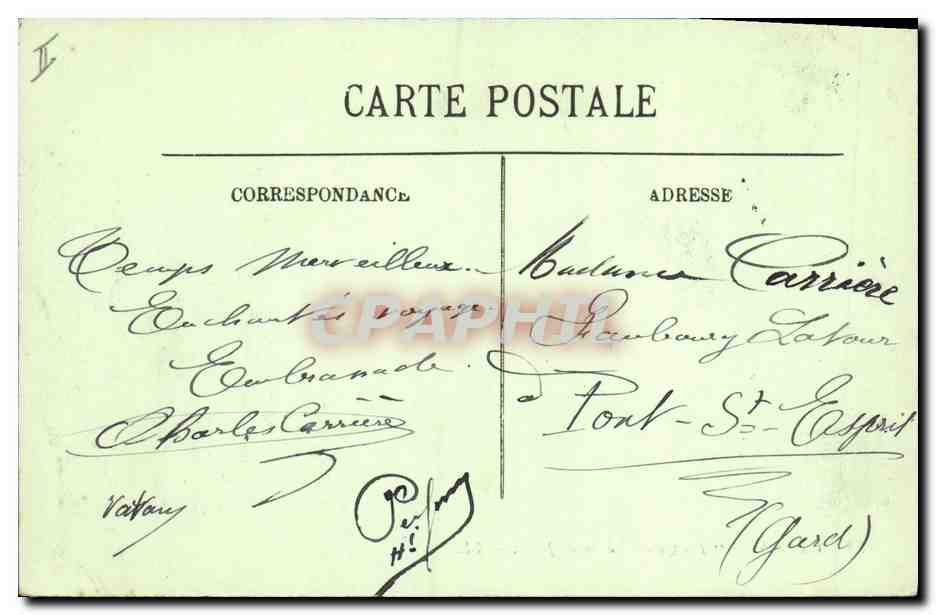 II
CARTE POSTALE
CORRESPONDANCE
Temps merveilleux.
Enchantés voyage.
Embrassade.
Charles Carrière
ADRESSE
Madame Carrière
Faubourg Latour
à
Pont-St-Esprit
(Gard)
CPAPHIL